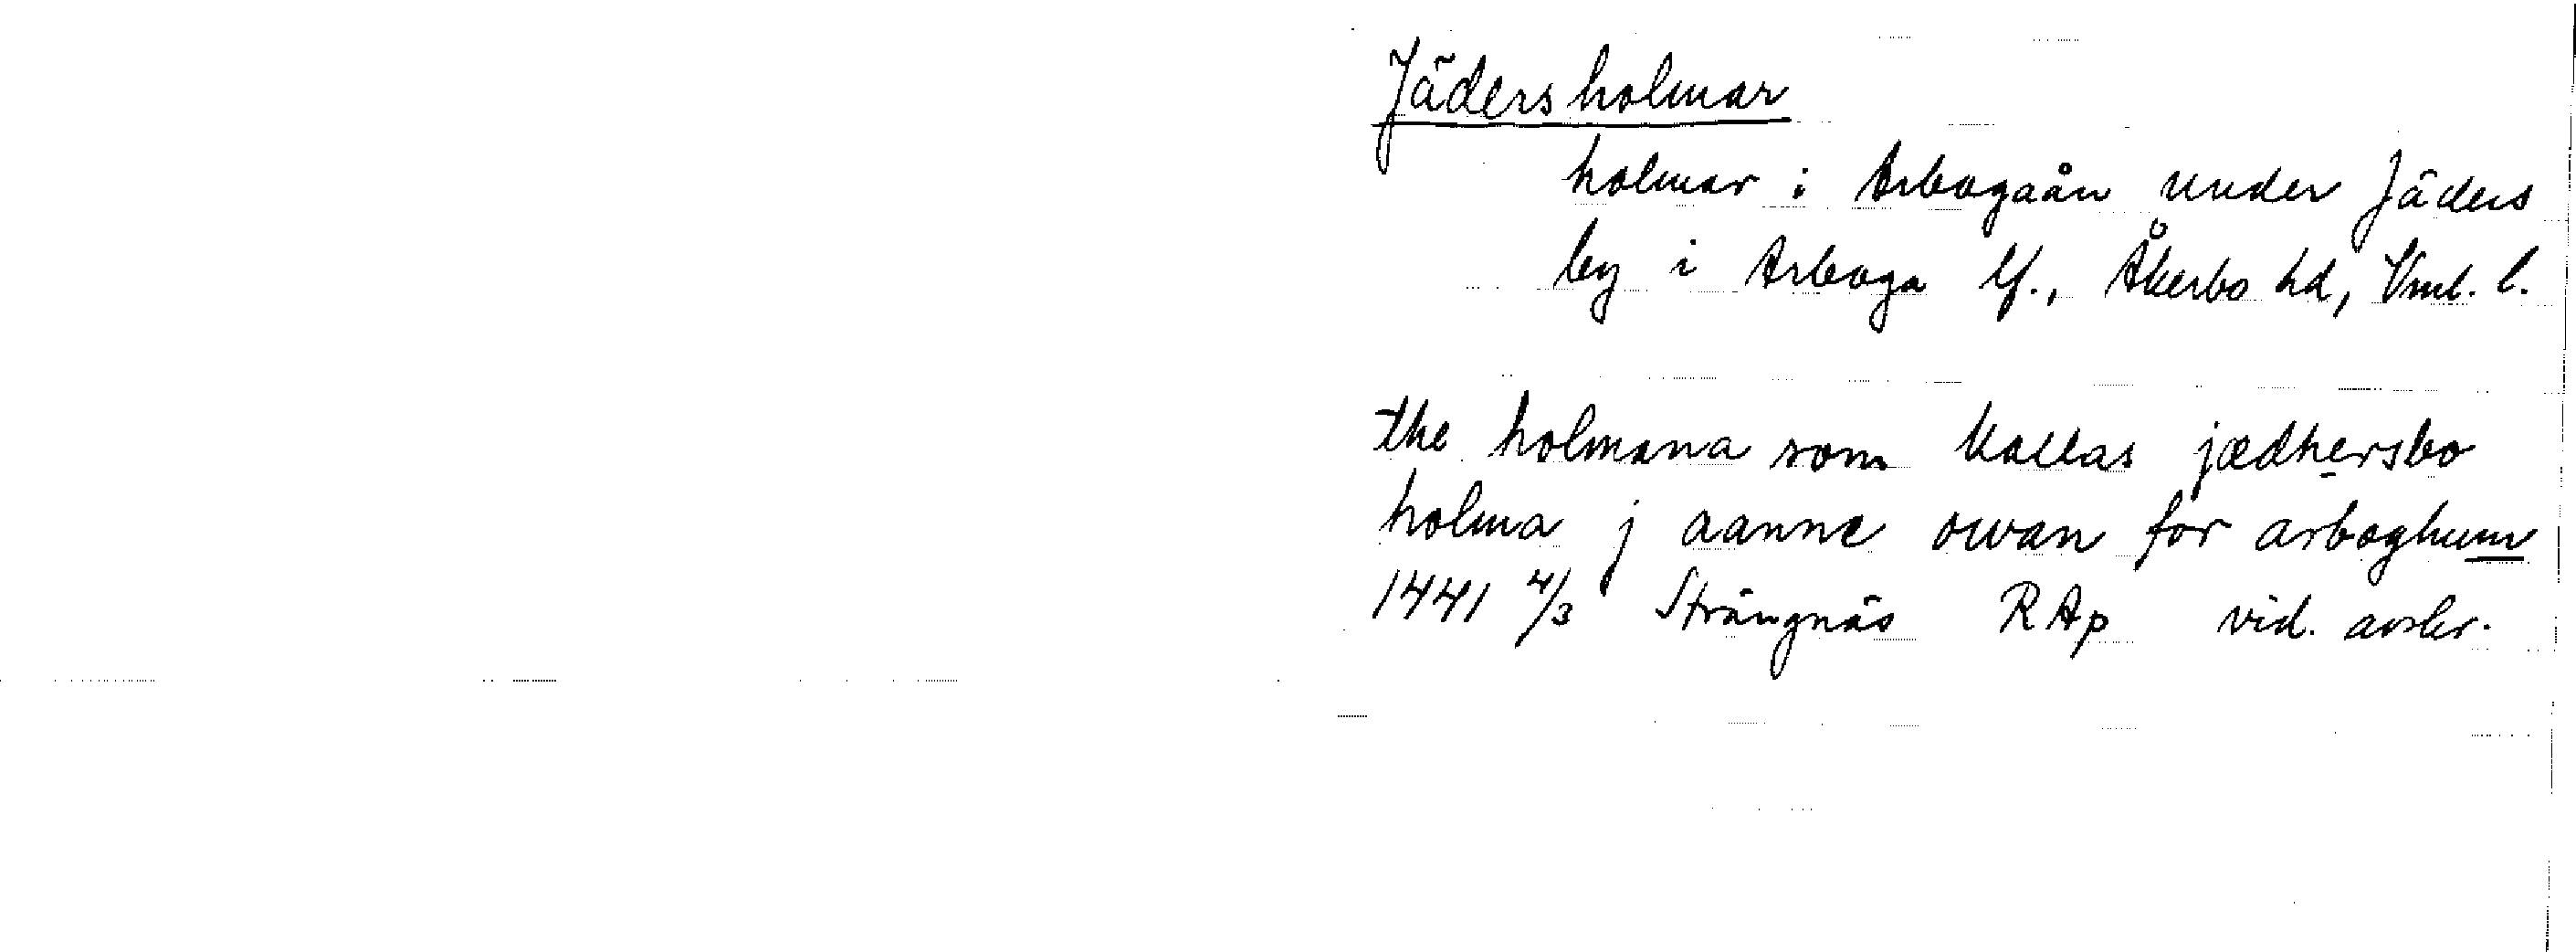 Jädersholmar
holmar i Arbogaån under Jäders
by i Arboga lf., Åkerbo hd, Vml. l.
the holmana som kallas jædhersbo
holma j aanne owan for arboghum
1441 4/3 Strängnäs RAp vid. avskr.